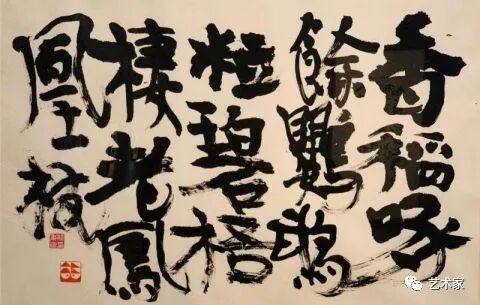 香稻啄
餘鸚鵡
粒碧梧
棲老鳳
凰枝
艺术家